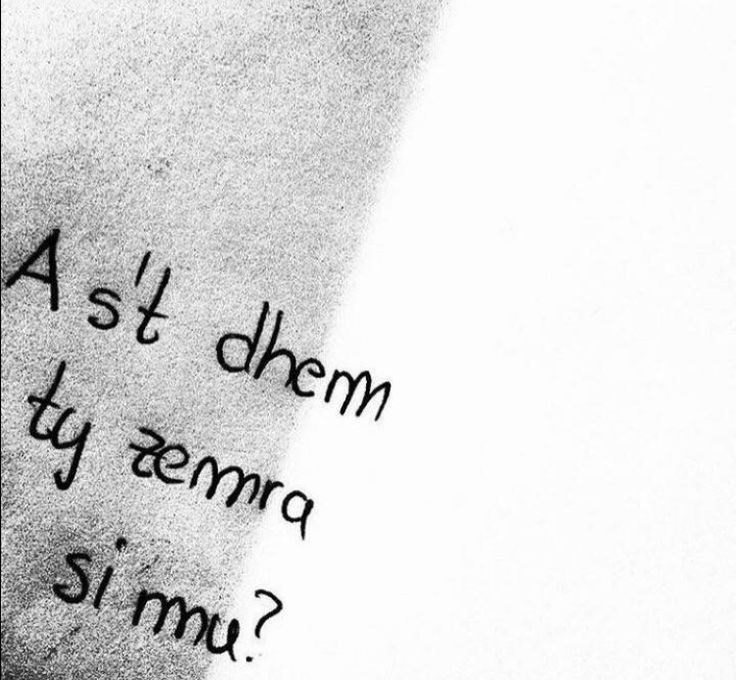 A s't dhem
ty zemra
si mu?